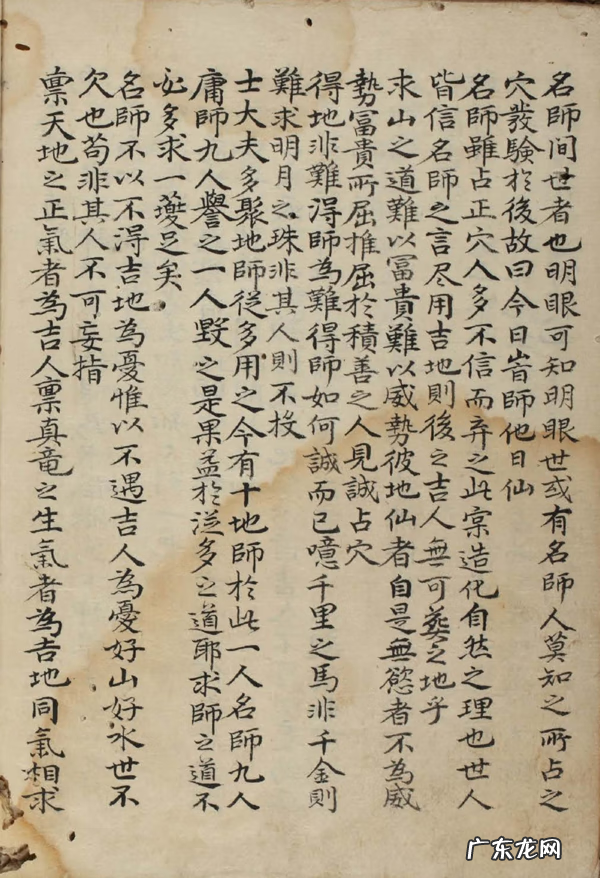 名師间世者也明眼可知明眼世或有名師人莫知之所占之
穴發驗於後故曰今日峕師他日仙
名師雖占正穴人多不信而弃之此寔造化自然之理也世人
皆信名師之言尽用吉地則後之吉人無可葬之地乎
求山之道難以冨貴難以威勢彼地仙者自是無慾者不為威
勢冨貴所屈惟屈於積善之人見誠占穴
得地非難得師為難得師如何誠而已噫千里之馬非千金則
難求明月之珠非其人則不投
士大夫多聚地師従多用之今有十地師於此一人名師九人
庸師九人譽之一人毀之是果益於従多之道耶求師之道不
必多求一夔足矣
名師不以不得吉地為憂惟以不遇吉人為憂好山好水世不
欠也苟非其人不可妄指
禀天地之正氣者為吉人禀真竜之生氣者為吉地同氣相求
广东龙网